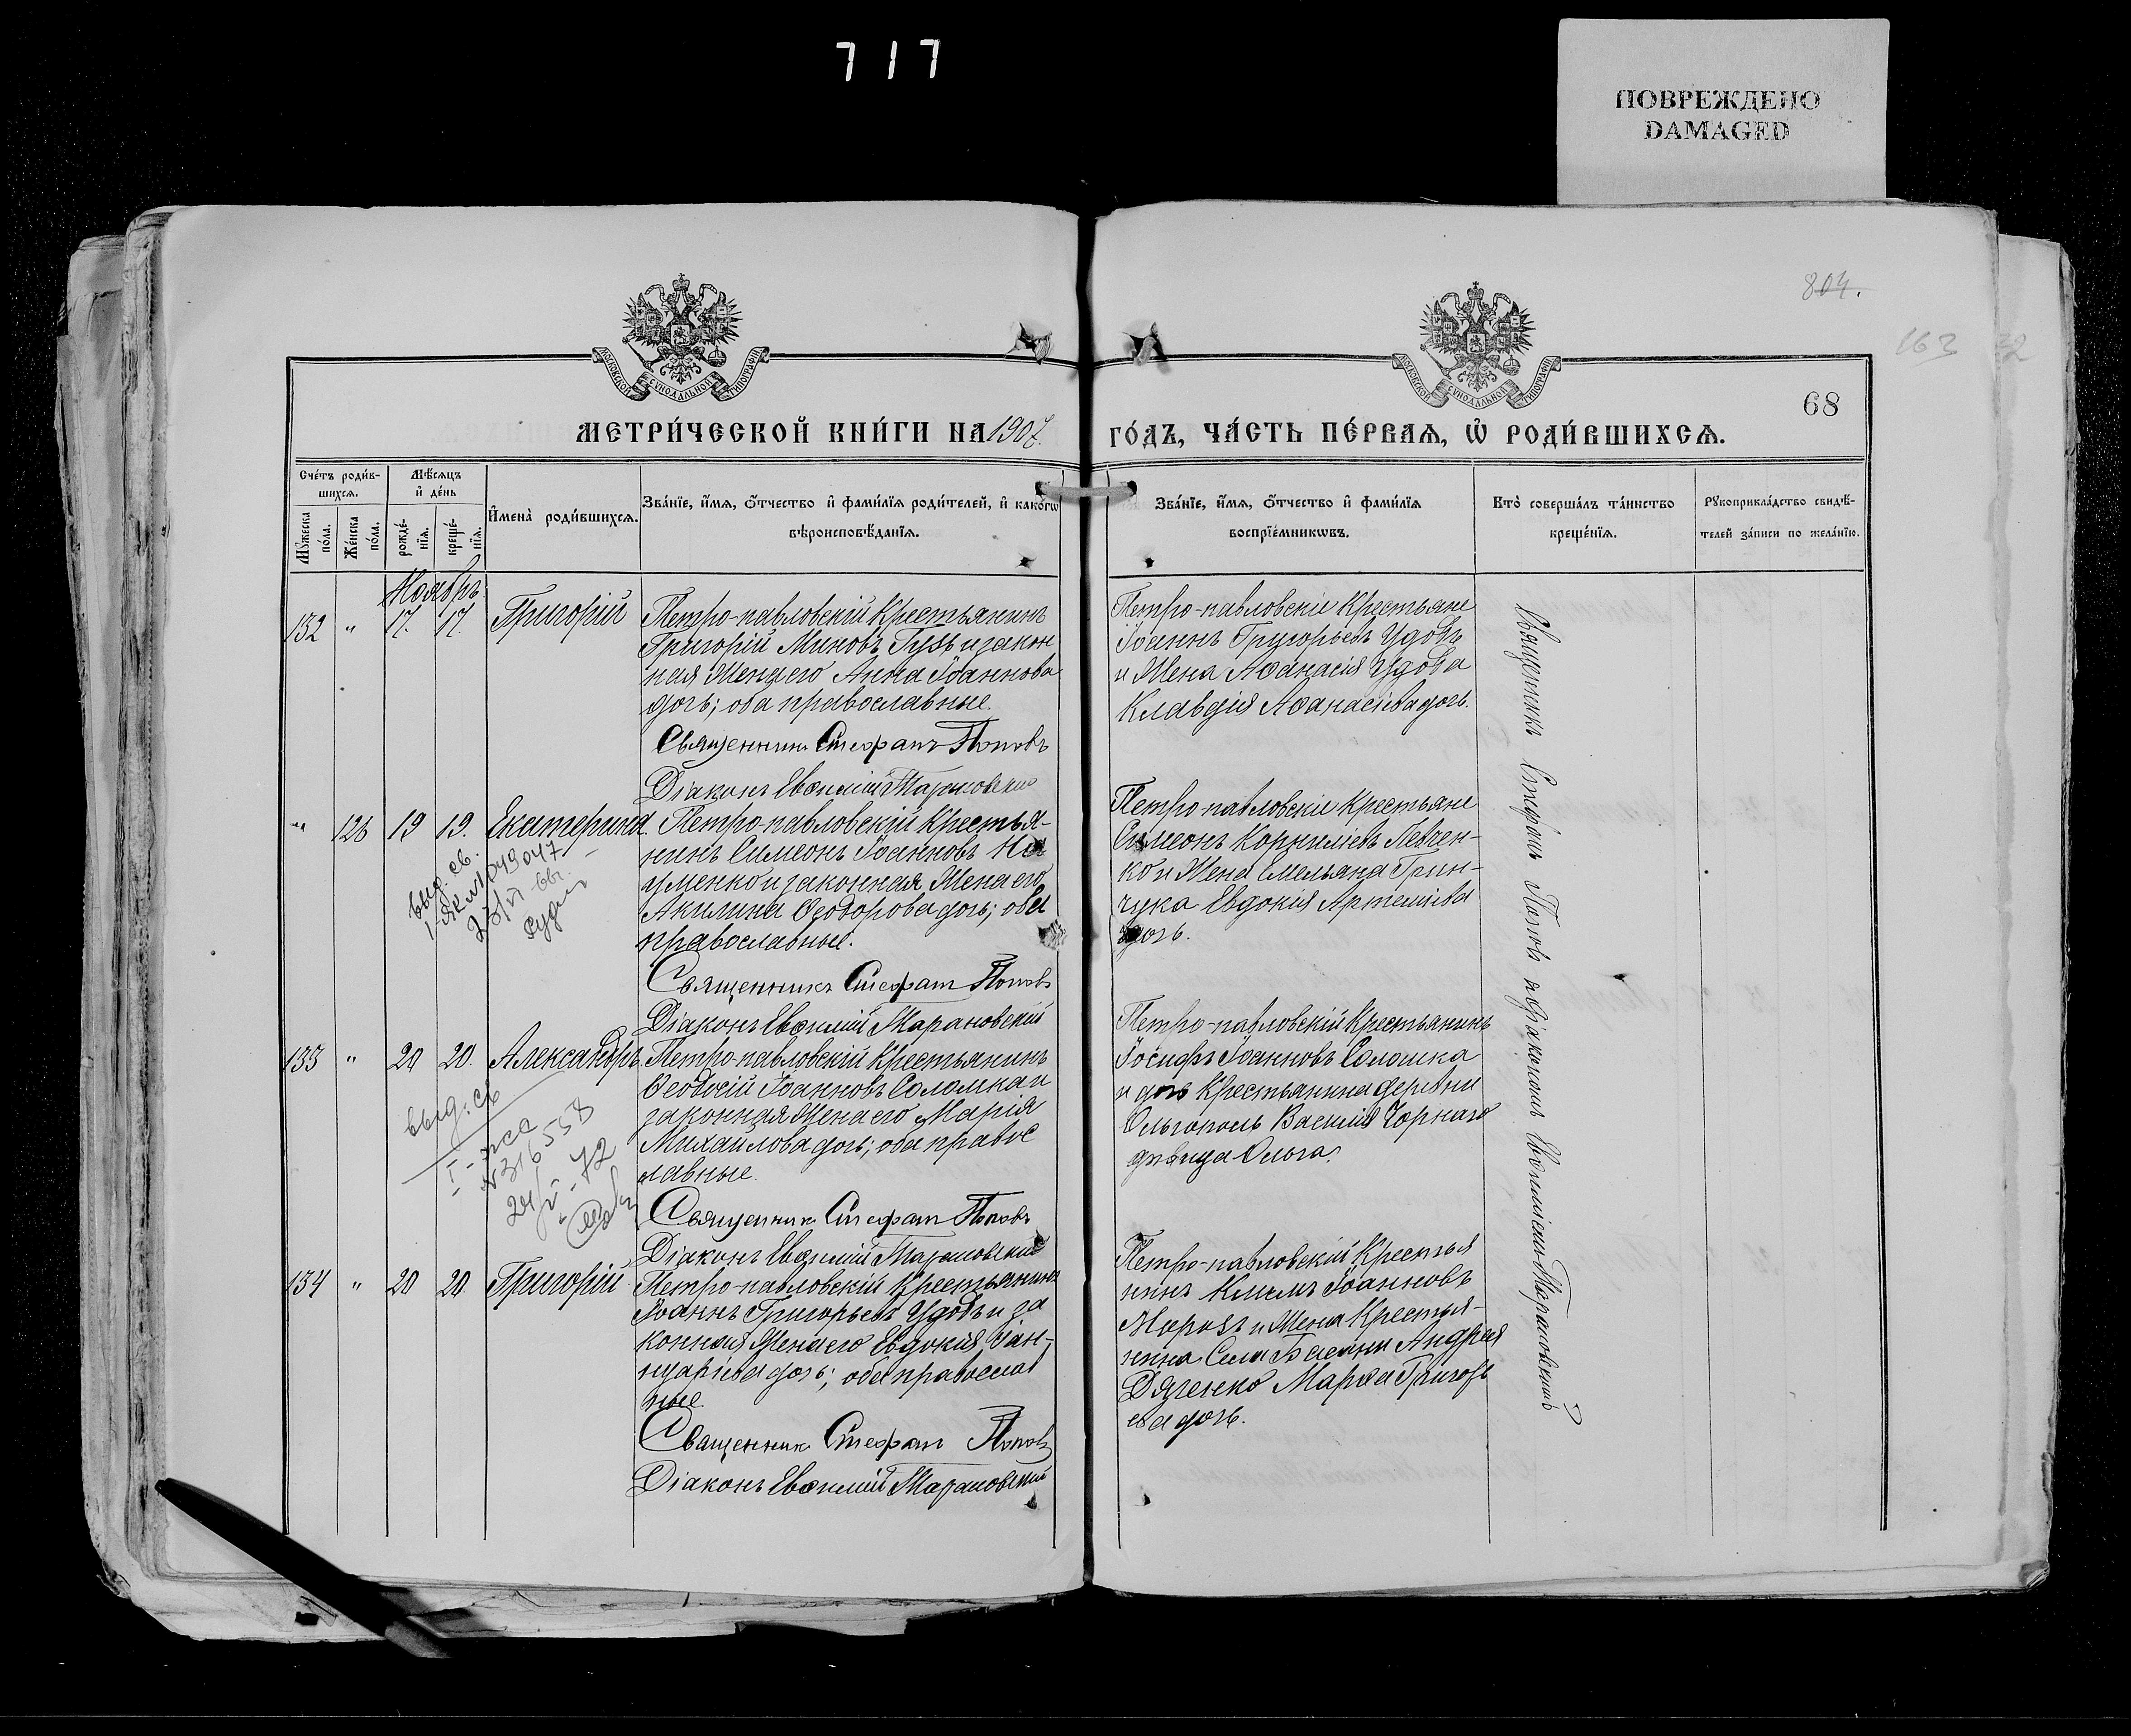 717
ПОВРЕЖДЕНО
DAMAGED
804.
163
32
МОСКОВСКОЙ СѴНОДАЛЬНОЙ ТИПОГРАФІИ
МОСКОВСКОЙ СѴНОДАЛЬНОЙ ТИПОГРАФІИ
68
МЕТРИ́ЧЕСКОЙ КНИ́ГИ НА 1907
ГО́ДЪ, ЧА́СТЬ ПЕ́РВАЯ, Ѡ РОДИ́ВШИХСЯ.
Сче́тъ роди́в-
шихся.
Мѣ́сяцъ
и҆ де́нь
Мꙋ́жеска по́ла.
Же́нска по́ла.
рожде́-
нїя.
креще́-
нїя.
И҆мена̀ роди́вшихся.
Зва́нїе, и҆́мя, ѻ҆́тчество и҆ фами́лїя роди́телей, и҆ како́гѡ
вѣроисповѣ́данїя.
Зва́нїе, и҆́мя, ѻ҆́тчество и҆ фами́лїя
воспрїе́мникѡвъ.
Кто̀ соверша́лъ та́инство
креще́нїя.
Рꙋкоприкла́дство свидѣ́-
телей за́писи по жела́нїю.
Ноябрь
132 " 17. 17. Григорій
Петро-павловскій Крестьянинъ
Григорій Миновъ Гузь и закон
ная Жена его Анна Іоаннова
дочь; оба православные.
Священникъ Стефанъ Поповъ
Діаконъ Евѳимій Марановскій
Петро-павловскіе Крестьяне
Іоаннъ Григорьевъ Удовъ
и Жена Аѳанасія Удова
Клавдія Аѳанасіева дочь.
" 126 19 19. Екатерина
Петро-павловскій Крестья-
нинъ Симеонъ Іоанновъ
и законная Жена его
Акилина Ѳеодорова дочь; оба
православные.
Священникъ Стефанъ Поповъ
Діаконъ Евѳимій Марановскій
выд. св.
1-ЯК № 049047
23/VI
Петро-павловскіе Крестьяне
Симеонъ Корниліевъ Левчен-
ко и Жена Емельяна Грин-
чука Евдокія Артеміева
дочь.
133 " 20 20. Александръ
Петро-павловскій Крестьянинъ
Ѳеодосій Іоанновъ Соломка и
законная Жена его Марія
Михаилова дочь; оба правос
лавные.
Священникъ Стефанъ Поповъ
Діаконъ Евѳимій Марановскій
выд. св
№ 316558
72
Петро-павловскій Крестьянинъ
Іосифъ Іоанновъ Соломка
и дочь Крестьянина деревни
Ольгополь Василія Чорнаго
дѣвица Ольга.
134 " 20 20. Григорій
Петро-павловскій Крестьянинъ
Іоаннъ Григорьевъ Удовъ и за
конная Жена его Евдокія
дочь; оба православ
ные.
Священникъ Стефанъ Поповъ
Діаконъ Евѳимій Марановскій
Петро-павловскій Крестья
нинъ Климъ Іоанновъ
Морозъ и Жена Крестья-
нина Села Басани Андрея
Дяченко Марѳа Григорь
ева дочь.
Священникъ Стефанъ Поповъ и діаконъ Евѳимій Марановскій